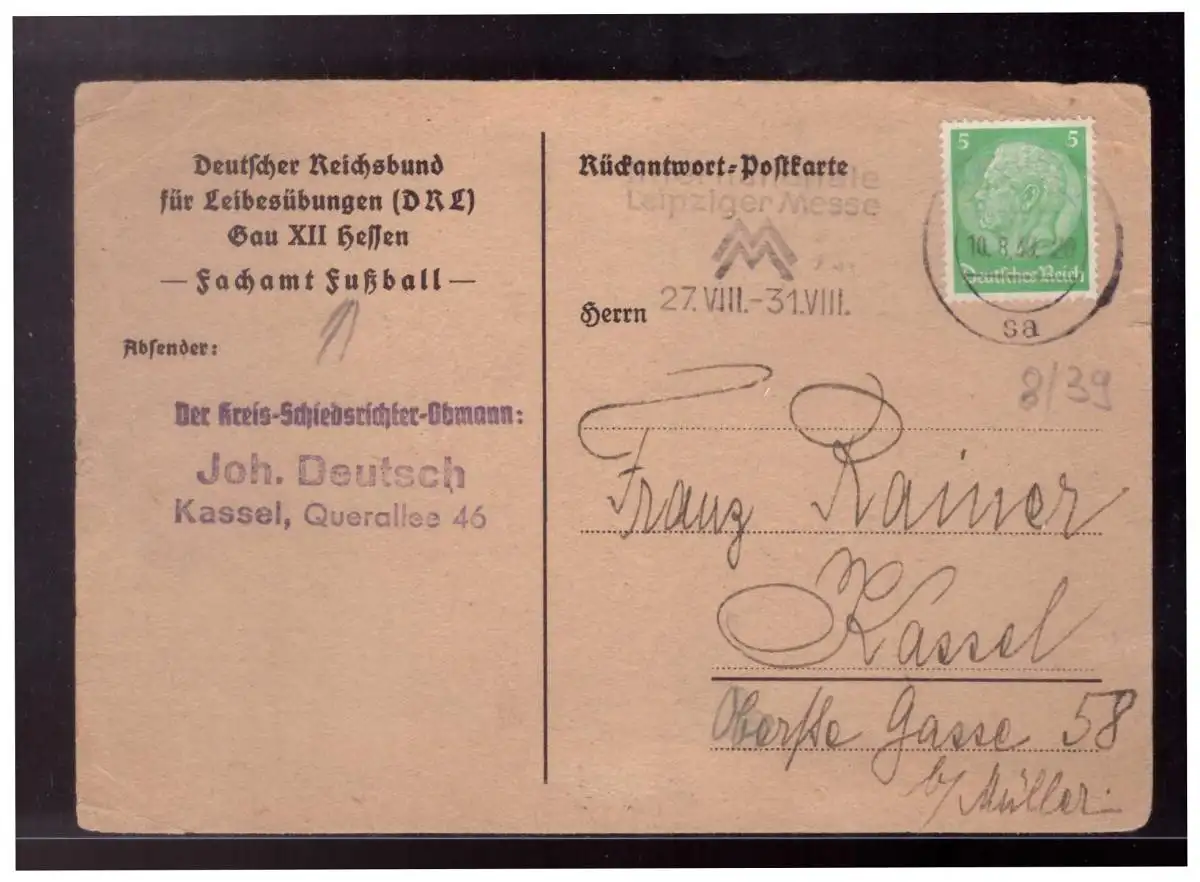 Deutscher Reichsbund
für Leibesübungen (DRL)
Gau XII Hessen
— Fachamt Fußball —
Absender:
Der Kreis-Schiedsrichter-Obmann:
Joh. Deutsch
Kassel, Querallee 46
Rückantwort-Postkarte
Leipziger Messe
27. VIII. - 31. VIII.
5 5
Deutsches Reich
10. 8.
sa
8/39
Herrn
Franz Rainer
Kassel
Oberste Gasse 58
b/ Müller.